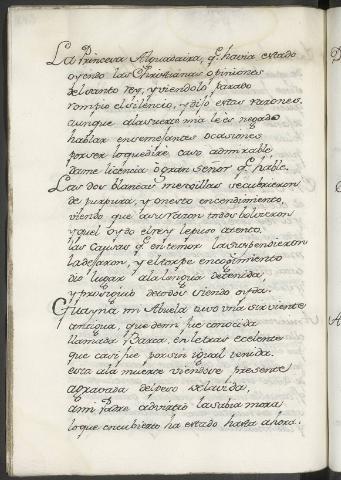 La Princesa Alguadaira, q. havia estado
oyendo las Christianas opiniones
del santo rey, y viendolo parado
rompio el silencio, y dijo estas razones.
aunque a la suerte mia le es negado
hablar en semejantes ocasiones
por ser lo que diré, caso admirable
dame licencia o gran señor q. hable.
Las dos blancas mexillas se cubrieron
de purpura, y onesto encendimiento,
viendo que a su razon todos bolvieron
y que el oydo el rey le puso atento.
las causas q. en temor la suspendieron
la dejaron, y el torpe encogimiento
dio lugar a la lengua detenida
y prosiguio de todos siendo oyda.
Guayna mi Abuela tuvo una sirviente
antigua, que demi fue conocida
llamada Daxca, en letras excelente
que casi fue por sin igual tenida.
esta a la muerte viendose presente
agravada del peso de la vida,
a mi Padre advirtio la sabia mora
lo que encubierto ha estado hasta ahora.